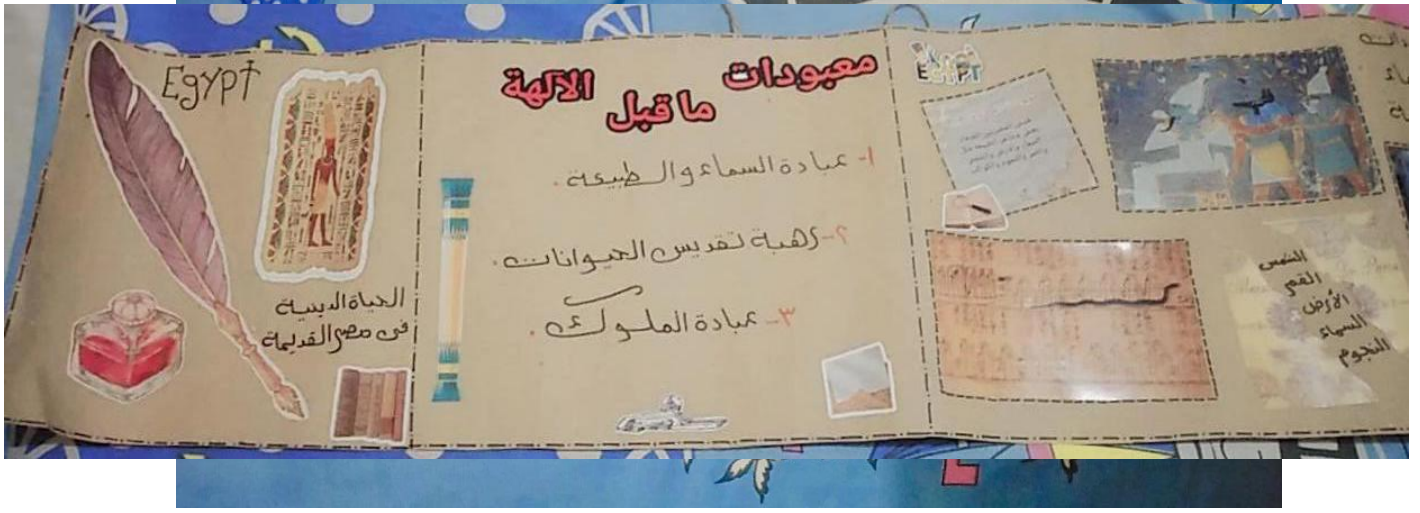 Egypt
الحياة الدينية
فى مصر القديمة
معبودات
ما قبل
الآلهة
١- عبادة السماء والطبيعة.
٢- رهبة تقديس الحيوانات.
٣- عبادة الملوك.
EGYPT
الشمس
القمر
الأرض
السماء
النجوم